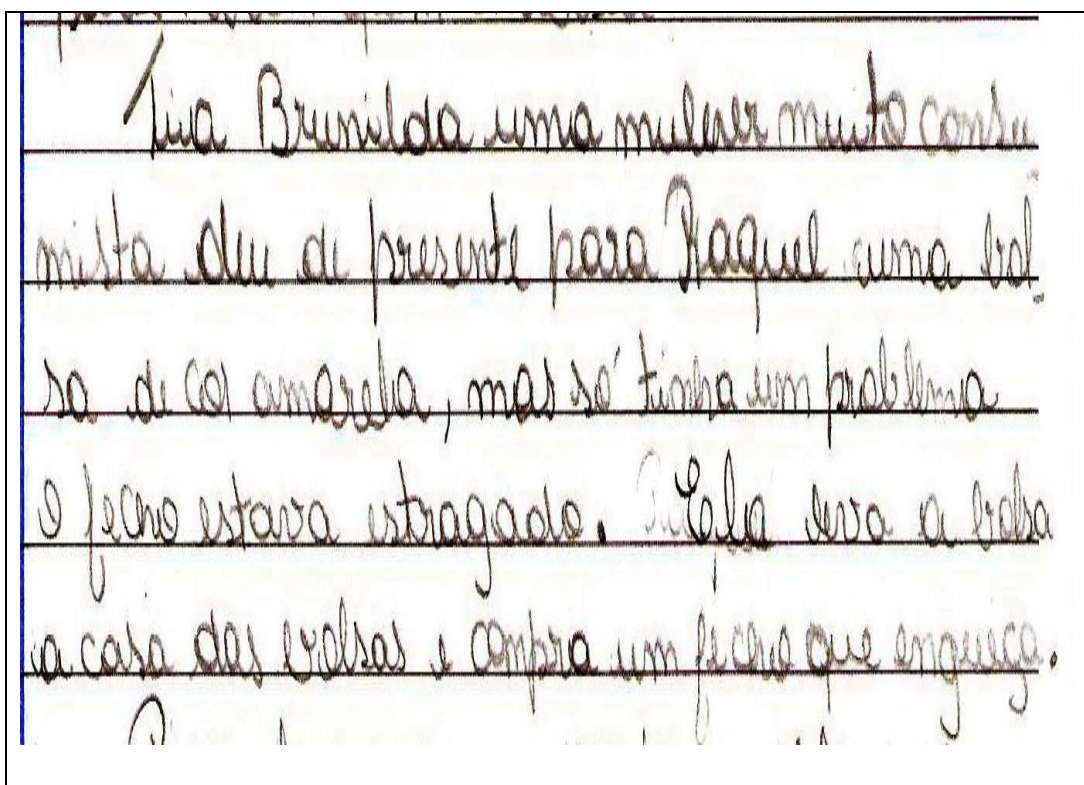 Tiia Brunilda uma mulher muito consu
mista deu de presente para Raquel uma bol-
sa de cor amarela, mas só tinha um problema
o fecho estava estragado. Ela leva a bolsa
a casa das bolsas e compra um fecho que enguiça.